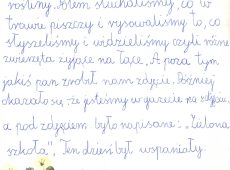 rośliny. Potem słuchaliśmy, co w
trawie piszczy i rysowaliśmy to, co
słyszeliśmy i widzieliśmy czyli różne
zwierzęta żyjące na łące. A poza tym
jakiś pan zrobił nam zdjęcie. Później
okazało się że jesteśmy w gazecie na zdjęciu,
a pod zdjęciem było napisane: „Zielona
szkoła". Ten dzień był wspaniały